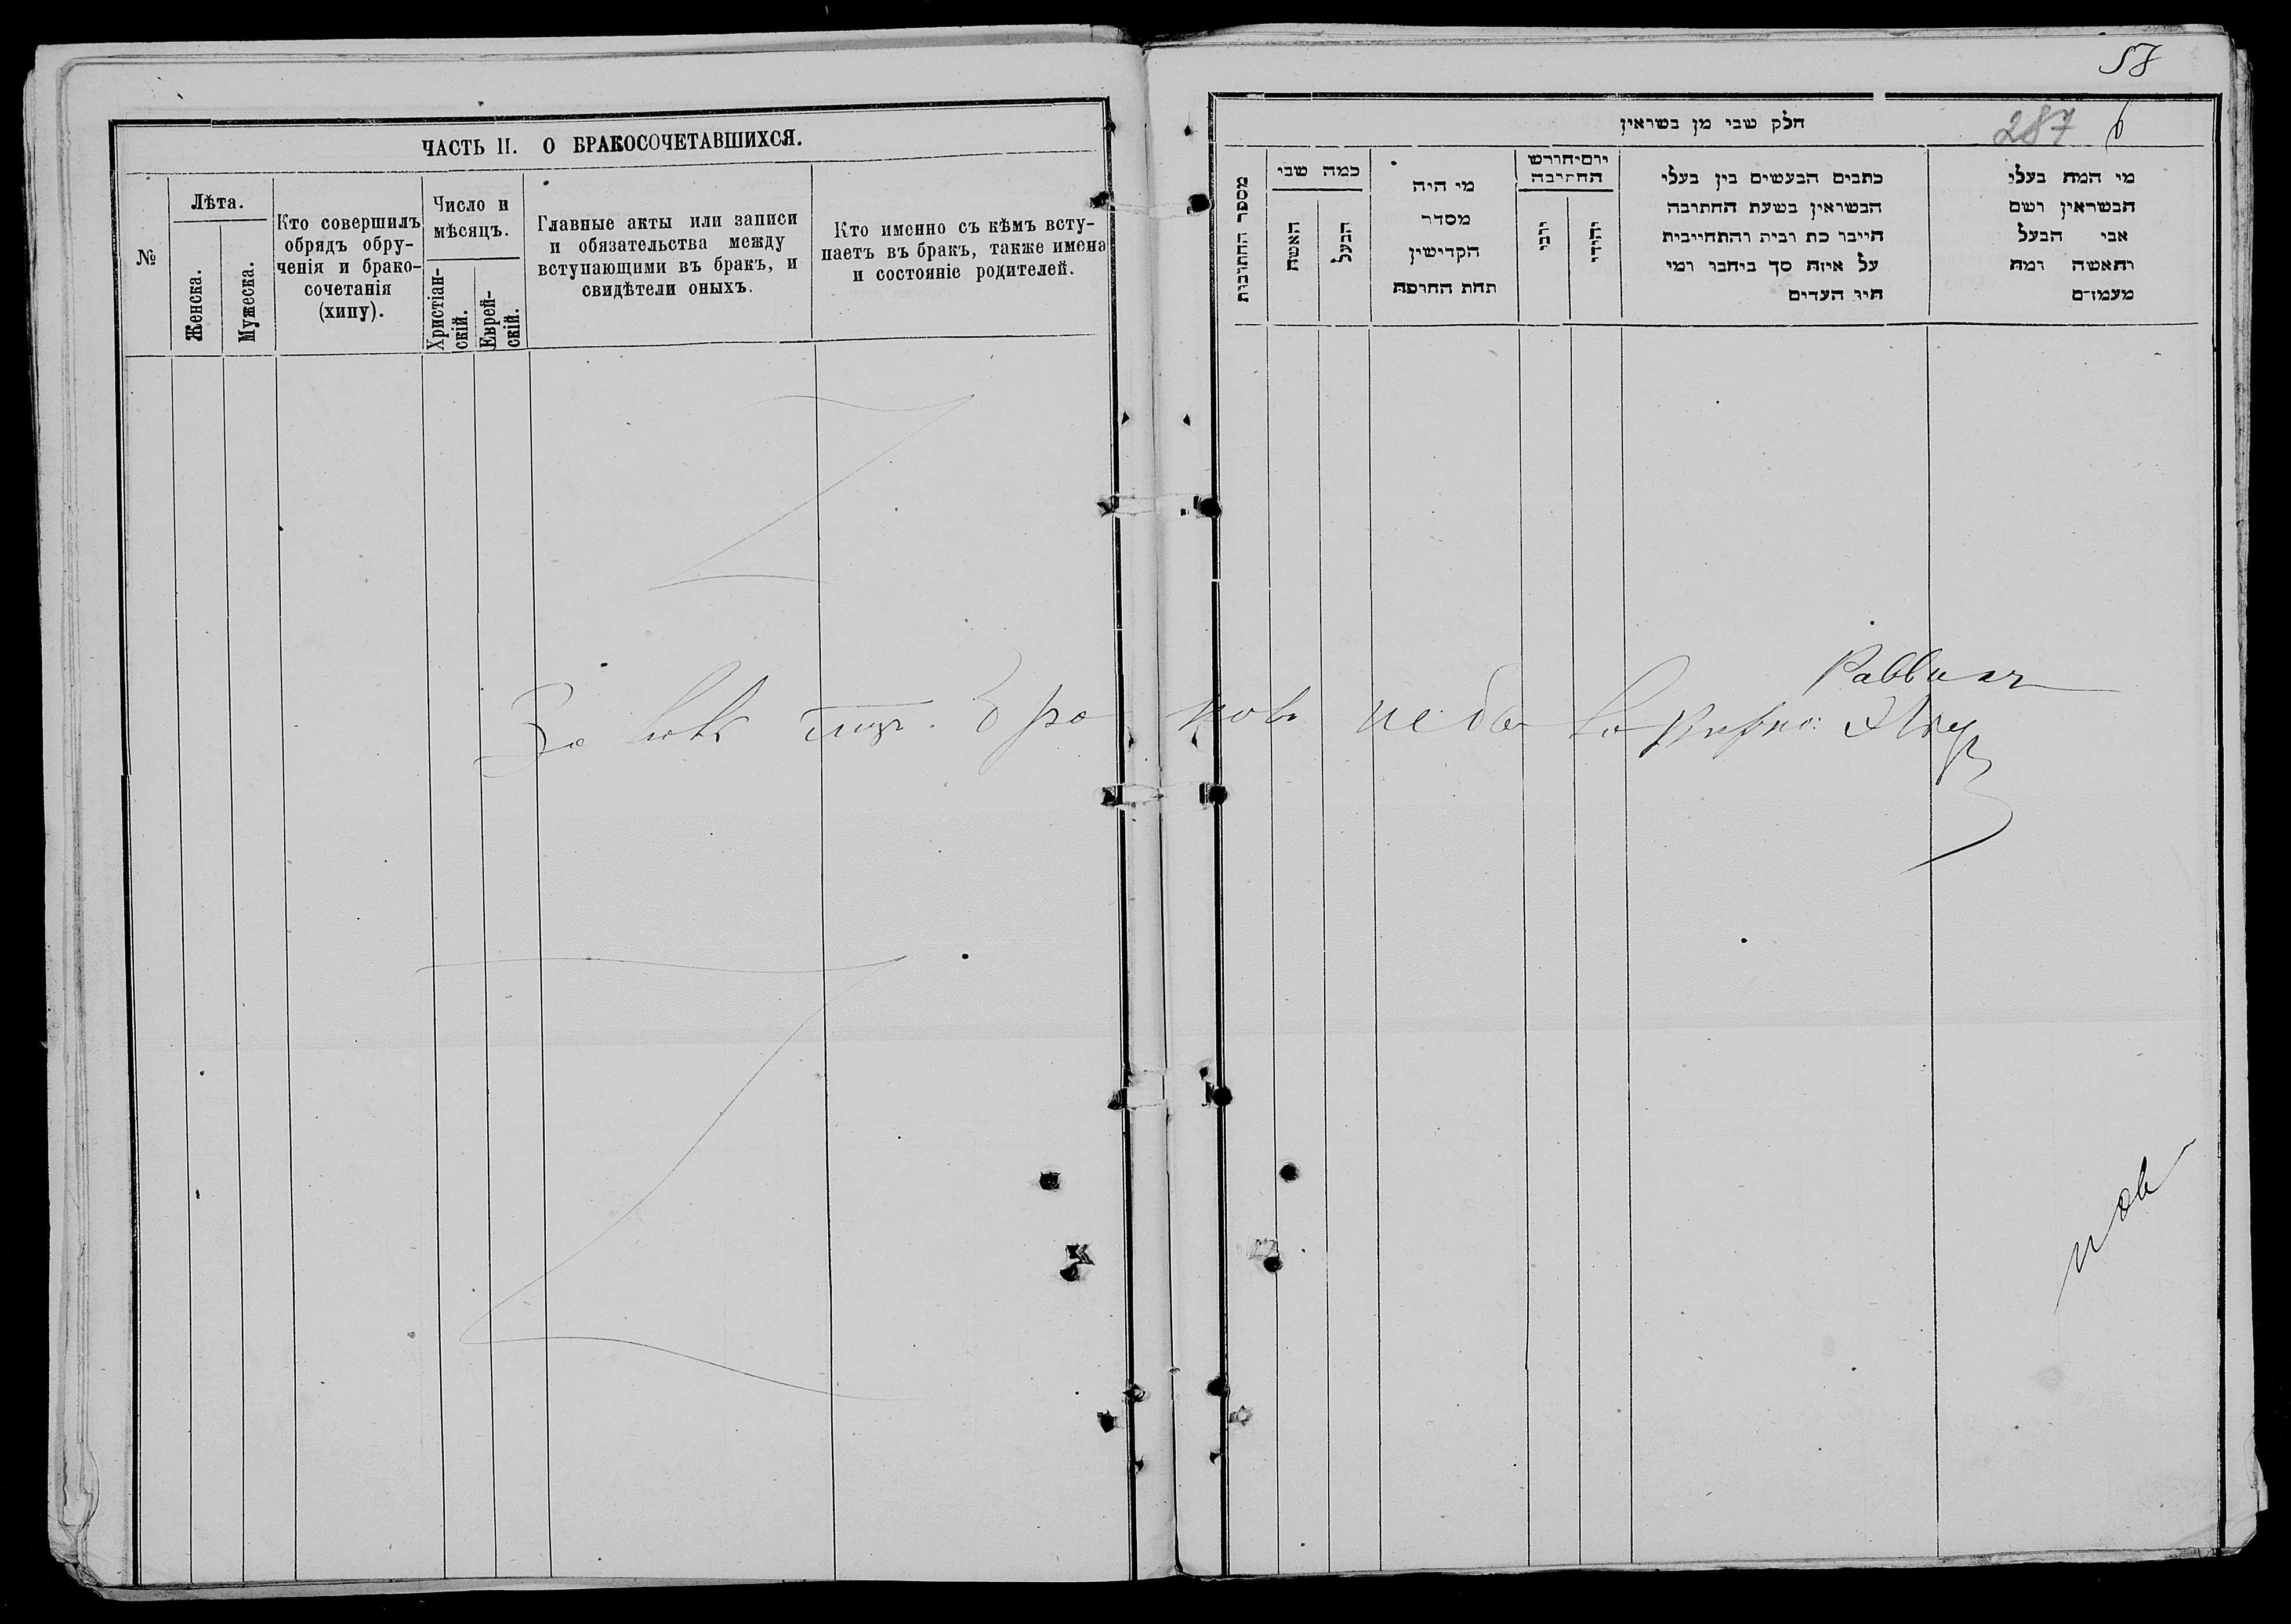 58
287
6
ЧАСТЬ II. О БРАКОСОЧЕТАВШИХСЯ.
№
Лѣта.
Женска.
Мужеска.
Кто совершилъ
обрядъ обру-
ченія и брако-
сочетанія
(хипу).
Число и
мѣсяцъ.
Христіан-
скій.
Еврей-
скій.
Главные акты или записи
и обязательства между
вступающими въ бракъ, и
свидѣтели оныхъ.
Кто именно съ кѣмъ всту-
паетъ въ бракъ, также имена
и состояніе родителей.
חלק שני מן נשואין
מספר החתונות
כמה שני
האשה
הבעל
מי היה
מסדר
הקדושין
תחת החופה
יום וחודש
החתונה
יוני
יהודי
כתבים הנעשים בין בעלי
הנשואין בשעת החתונה
היינו כת ובית והתחייבות
על איזה סך ביחבו ומי
היו העדים
מי המה בעלי
הנשואין ושם
אבי הבעל
והאשה ומה
מעמדם
За мѣс браковъ не бы
Раввинъ